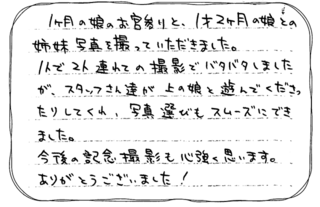 1ヶ月の娘のお宮参りと、1才2ヶ月の娘との
姉妹写真を撮っていただきました。
1人で2人連れての撮影でバタバタしました
が、スタッフさん達が上の娘と遊んでくださっ
たりしてくれ、写真選びもスムーズにでき
ました。
今後の記念撮影も心強く思います。
ありがとうございました!